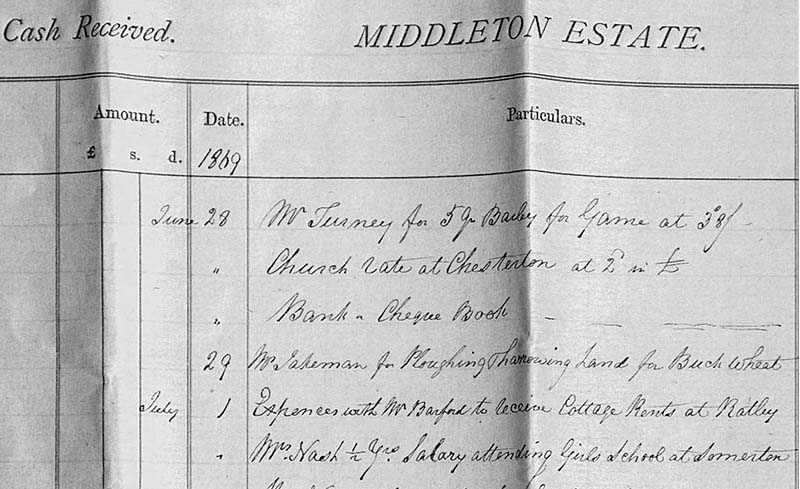 Cash Received. MIDDLETON ESTATE.
Amount. Date. Particulars.
£ s. d. 1869
June 28 Mr Turney for 5 Qr Barley for Game at 38/-
" Church rate at Chesterton at 2d in £
" Bank - Cheque Book
29 Mr Jakeman for Ploughing & harrowing Land for Buck wheat
July 1 Expences with Mr Barford to receive Cottage Rents at Ratley
" Mrs Nash ½ Yrs Salary attending Girls School at Somerton